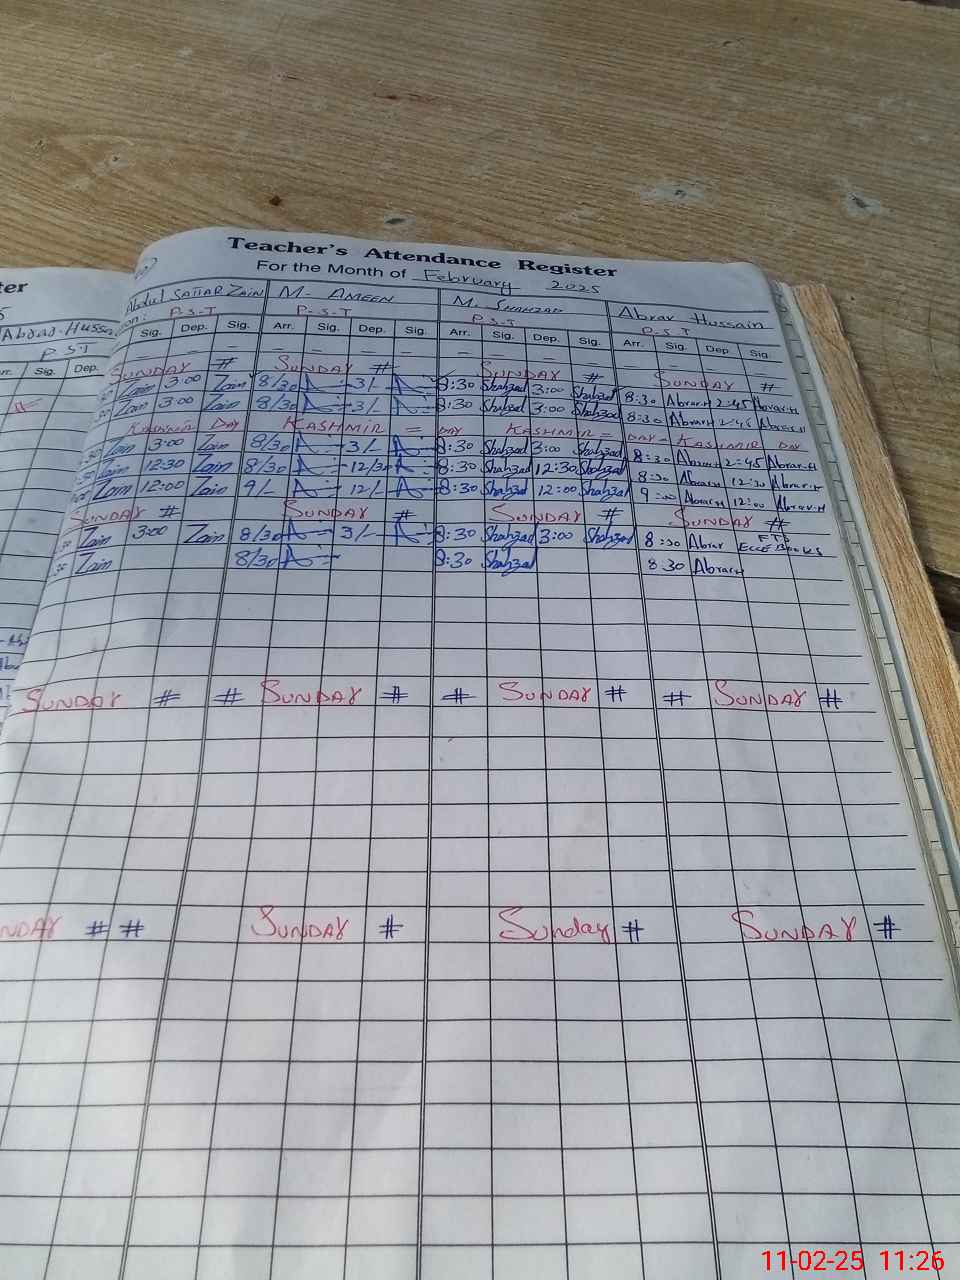 ter
Teacher's Attendance Register
For the Month of February 2025
5
Abdul SATTAR ZAIN M. AMEEN M. SHAHZAD Abrar Hussain
P.S.T P.S.T P.S.T P.S.T
Sig. Dep. Sig. Arr. Sig. Dep. Sig. Arr. Sig. Dep. Sig. Arr. Sig. Dep. Sig.
P.S.T
Sig. Dep.
– – – – – – – – – – – – – – –
SUNDAY # SUNDAY # SUNDAY # SUNDAY #
Zain 3:00 Zain 8/30 3/- 8:30 Shahzad 3:00 Shahzad 8:30 Abrar-H 2:45 Abrar-H
Zain 3:00 Zain 8/30 3/- 8:30 Shahzad 3:00 Shahzad 8:30 Abrar-H 2:45 Abrar-H
Kashmir Day KASHMIR = DAY KASHMIR = DAY - KASHMIR DAY
Zain 3:00 Zain 8/30 3/- 8:30 Shahzad 3:00 Shahzad 8:30 Abrar-H 2:45 Abrar-H
Zain 12:30 Zain 8/30 12/30 8:30 Shahzad 12:30 Shahzad 8:30 Abrar-H 12:30 Abrar-H
Zain 12:00 Zain 9/- 12/- 8:30 Shahzad 12:00 Shahzad 9:00 Abrar-H 12:00 Abrar-H
SUNDAY # SUNDAY # SUNDAY # SUNDAY #
Zain 3:00 Zain 8/30 3/- 8:30 Shahzad 3:00 Shahzad 8:30 Abrar FTS ECCE BOOKS
Zain 8/30 8:30 Shahzad 8:30 Abrar-H
SUNDAY # # SUNDAY # # SUNDAY # # SUNDAY #
NDAY # # SUNDAY # Sunday # SUNDAY #
11-02-25 11:26